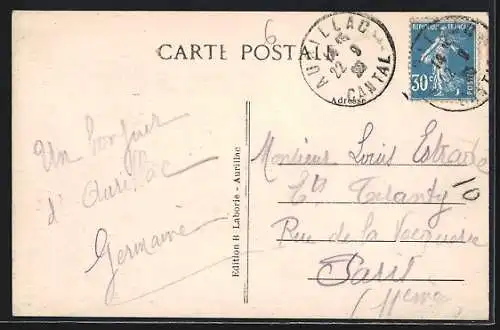 6
CARTE POSTALE
AURILLAC
22 9
CANTAL
REPUBLIQUE FRANÇAISE
30c
POSTES
Adresse
Un bonjour
d'Aurillac
Germaine
Edition B Laborie - Aurillac
Monsieur Louis Estrade
Ets
Rue de la
Paris
10